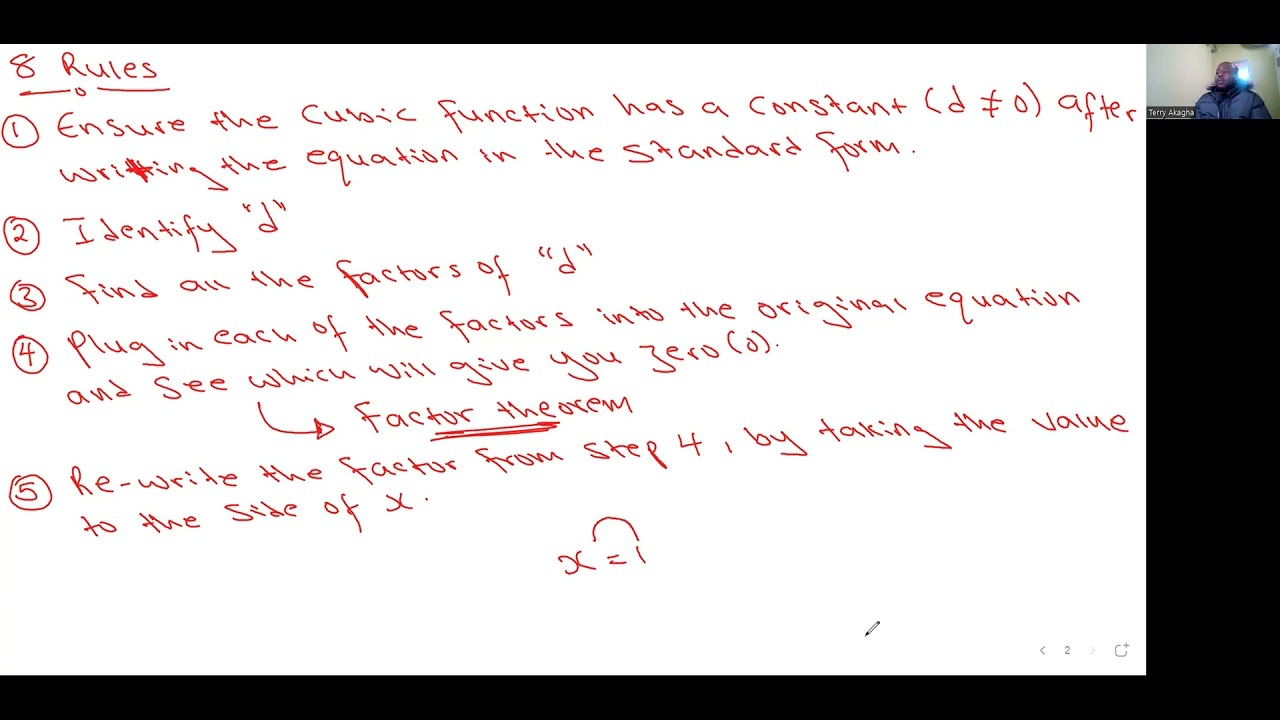 8 Rules
① Ensure the cubic function has a constant (d ≠ 0) after
writing the equation in the standard form.
② Identify "d"
③ Find all the factors of "d"
④ Plug in each of the factors into the original equation
and see which will give you zero (0).
Factor theorem
⑤ Re-write the factor from step 4, by taking the value
to the side of x.
x = 1
2
Terry Akagha